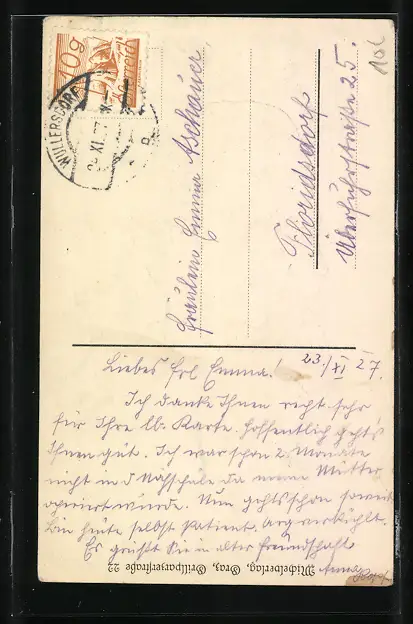 10 g
Österreich
WULLERSDORF
XI. 27
Fräulein Emma Aschauer
Floridsdorf
Überfuhrstraße 25.
Liebes Frl Emma! 23/XI 27.
Ich danke Ihnen recht sehr
für Ihre lb. Karte. Hoffentlich geht's
Ihnen gut. Ich war schon 2 Monate
nicht in d Nähschule da meine Mutter
operiert wurde. Nun geht's schon soweit
bin heute selbst Patient, arg verkühlt.
Es grüßt Sie in alter Freundschaft
Anna
Michelverlag, Graz, Grillparzerstraße 22